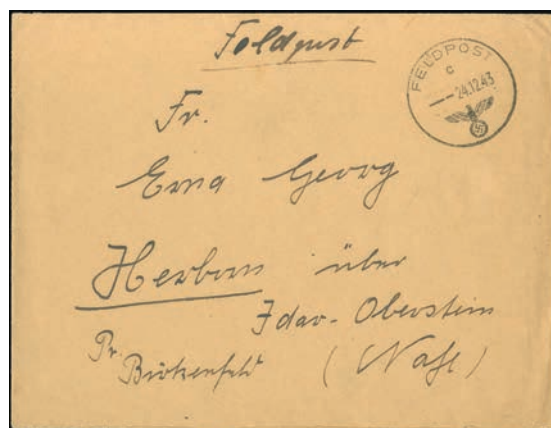 Feldpost
FELDPOST
c
24.12.43
Fr.
Erna Georg
Herborn über
Idar-Oberstein
Birkenfeld (Nahe)